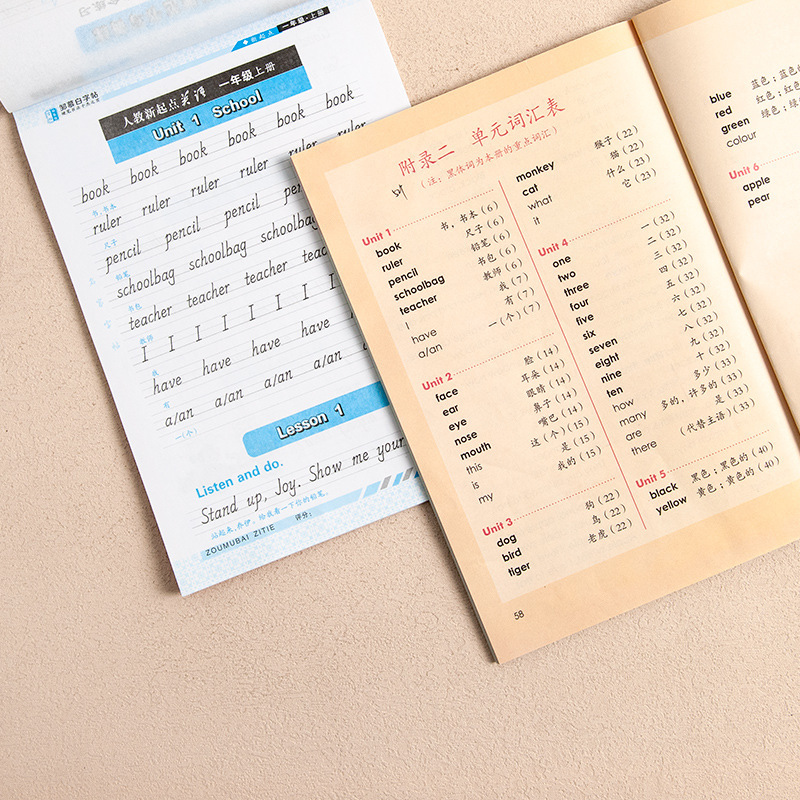 新起点 一年级·上册
邹慕白字帖
人教新起点英语 一年级上册
Unit 1 School
book book book book book book
书,书本
ruler ruler ruler ruler ruler ruler
尺子
pencil pencil pencil pencil
铅笔
schoolbag schoolbag schoolbag
书包
teacher teacher teacher teacher
教师
I I I I I I I I
我
have have have have
有
a/an a/an a/an a/an a/an
一(个)
Lesson 1
Listen and do.
Stand up, Joy. Show me your
站起来,乔伊。给我看一下你的铅笔。
ZOUMUBAI ZITIE 评分:
附录二 单元词汇表
(注:黑体词为本册的重点词汇)
Unit 1
book 书,书本(6)
ruler 尺子(6)
pencil 铅笔(6)
schoolbag 书包(6)
teacher 教师(6)
I 我(7)
have 有(7)
a/an 一(个)(7)
Unit 2
face 脸(14)
ear 耳朵(14)
eye 眼睛(14)
nose 鼻子(14)
mouth 嘴巴(14)
this 这(个)(15)
is 是(15)
my 我的(15)
Unit 3
dog 狗(22)
bird 鸟(22)
tiger 老虎(22)
monkey 猴子(22)
cat 猫(22)
what 什么(23)
it 它(23)
Unit 4
one 一(32)
two 二(32)
three 三(32)
four 四(32)
five 五(32)
six 六(32)
seven 七(32)
eight 八(32)
nine 九(32)
ten 十(32)
how 多少(33)
many 多的,许多的(33)
are 是(33)
there (代替主语)(33)
Unit 5
black 黑色;黑色的(40)
yellow 黄色;黄色的(40)
58
blue 蓝色;蓝色
red 红色;红色
green 绿色;绿
colour
Unit 6
apple
pear